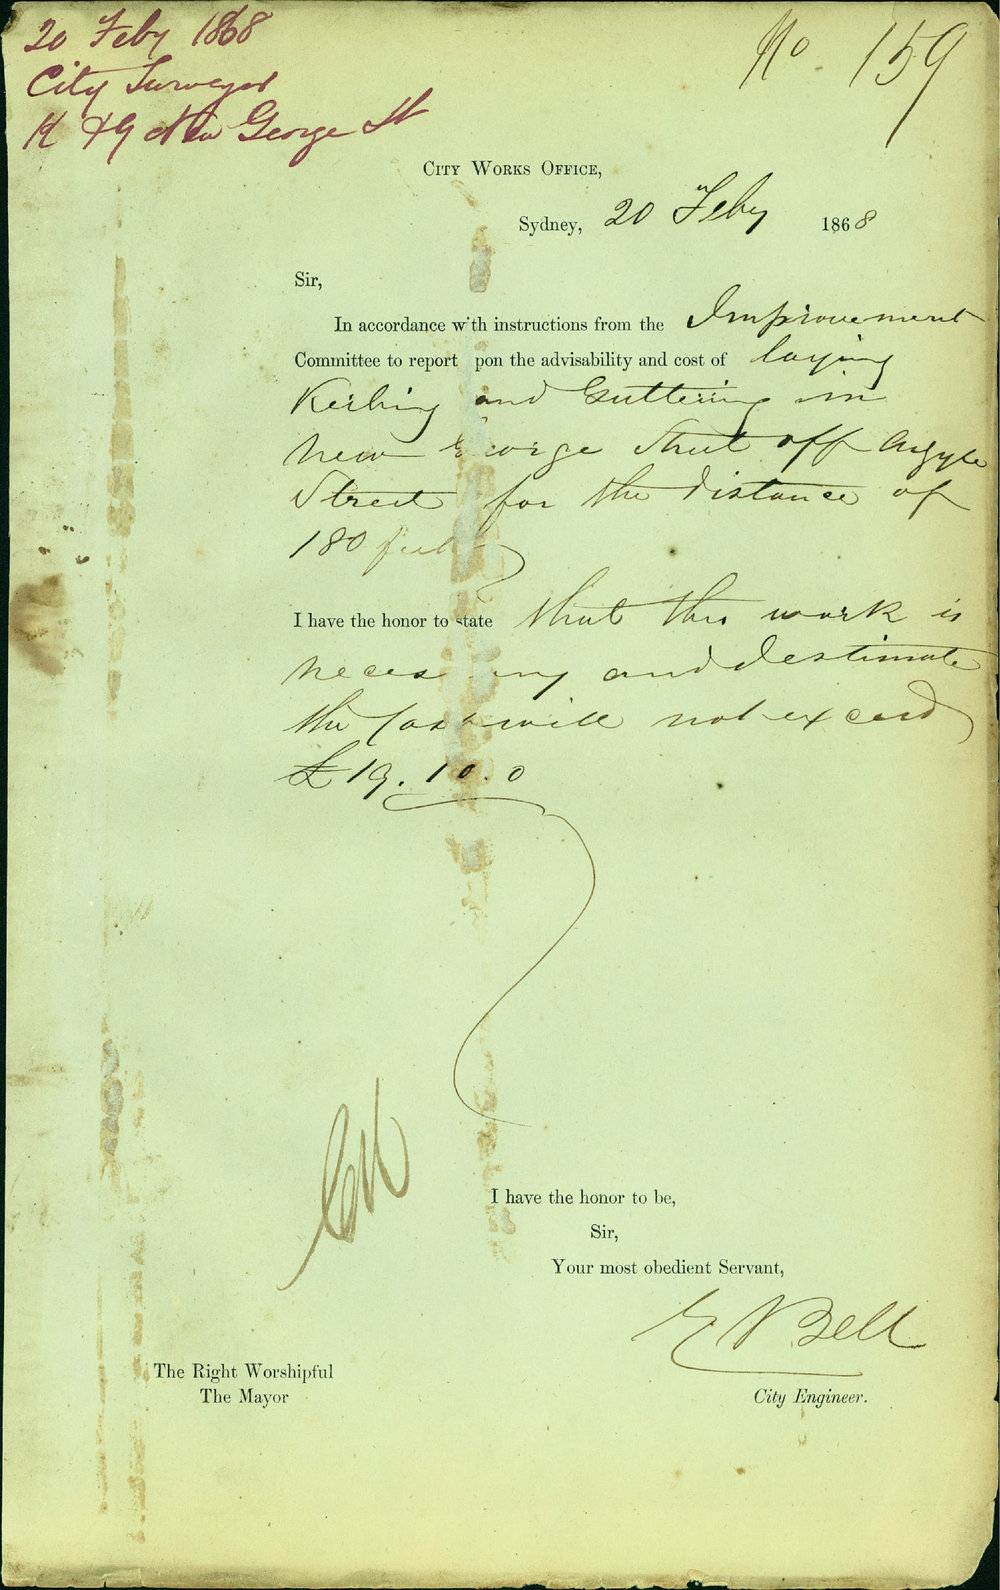 20 Feby 1868
City Surveyor
K & G New George St
No 159
City Works Office,
Sydney, 20 Feby 1868
Sir,
In accordance with instructions from the Improvement
Committee to report upon the advisability and cost of laying
Kerbing and Guttering in
New George Street off Argyle
Street for the distance of
180 feet
I have the honor to state that this work is
necessary and I estimate
the Cost will not exceed
£19.10.0
I have the honor to be,
Sir,
Your most obedient Servant,
E Bell
City Engineer.
The Right Worshipful
The Mayor